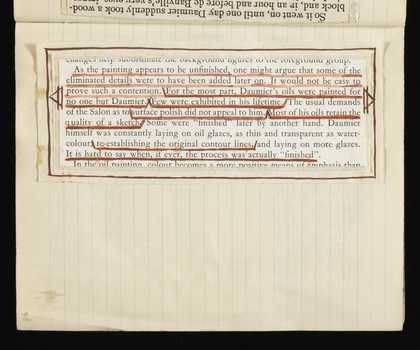 So it went on, until, on one day Daumier suddenly took a wood-
block and, in an hour and before de Banville's very eyes,
changes help subordinate the background figures to the foreground group.
As the painting appears to be unfinished, one might argue that some of the
eliminated details were to have been added later on. It would not be easy to
prove such a contention. For the most part, Daumier's oils were painted for
no one but Daumier. Few were exhibited in his lifetime. The usual demands
of the Salon as to surface polish did not appeal to him. Most of his oils retain the
quality of a sketch. Some were "finished" later by another hand. Daumier
himself was constantly laying on oil glazes, as thin and transparent as water-
colour, re-establishing the original contour lines, and laying on more glazes.
It is hard to say when, if ever, the process was actually "finished".
In the oil painting, colour becomes a more positive means of emphasis than